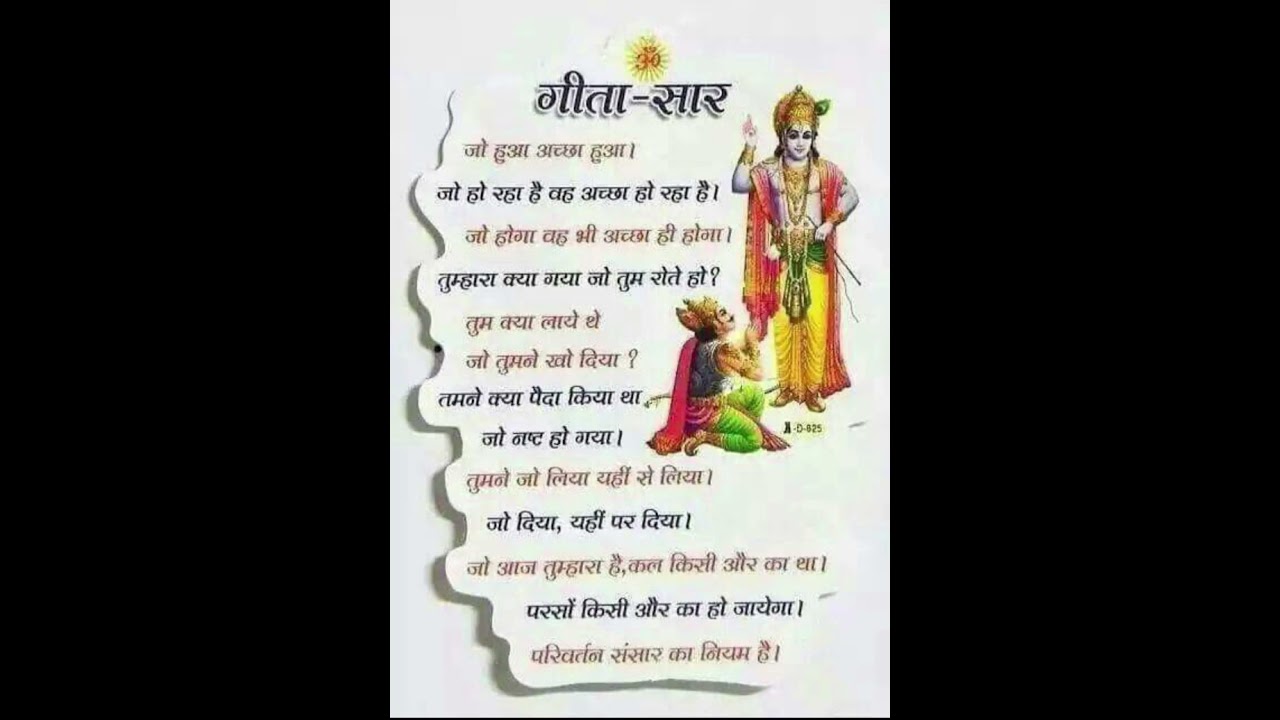 ॐ
गीता-सार
जो हुआ अच्छा हुआ।
जो हो रहा है वह अच्छा हो रहा है।
जो होगा वह भी अच्छा ही होगा।
तुम्हारा क्या गया जो तुम रोते हो?
तुम क्या लाये थे
जो तुमने खो दिया ?
तमने क्या पैदा किया था
जो नष्ट हो गया।
तुमने जो लिया यहीं से लिया।
जो दिया, यहीं पर दिया।
जो आज तुम्हारा है,कल किसी और का था।
परसों किसी और का हो जायेगा।
परिवर्तन संसार का नियम है।
-D-825